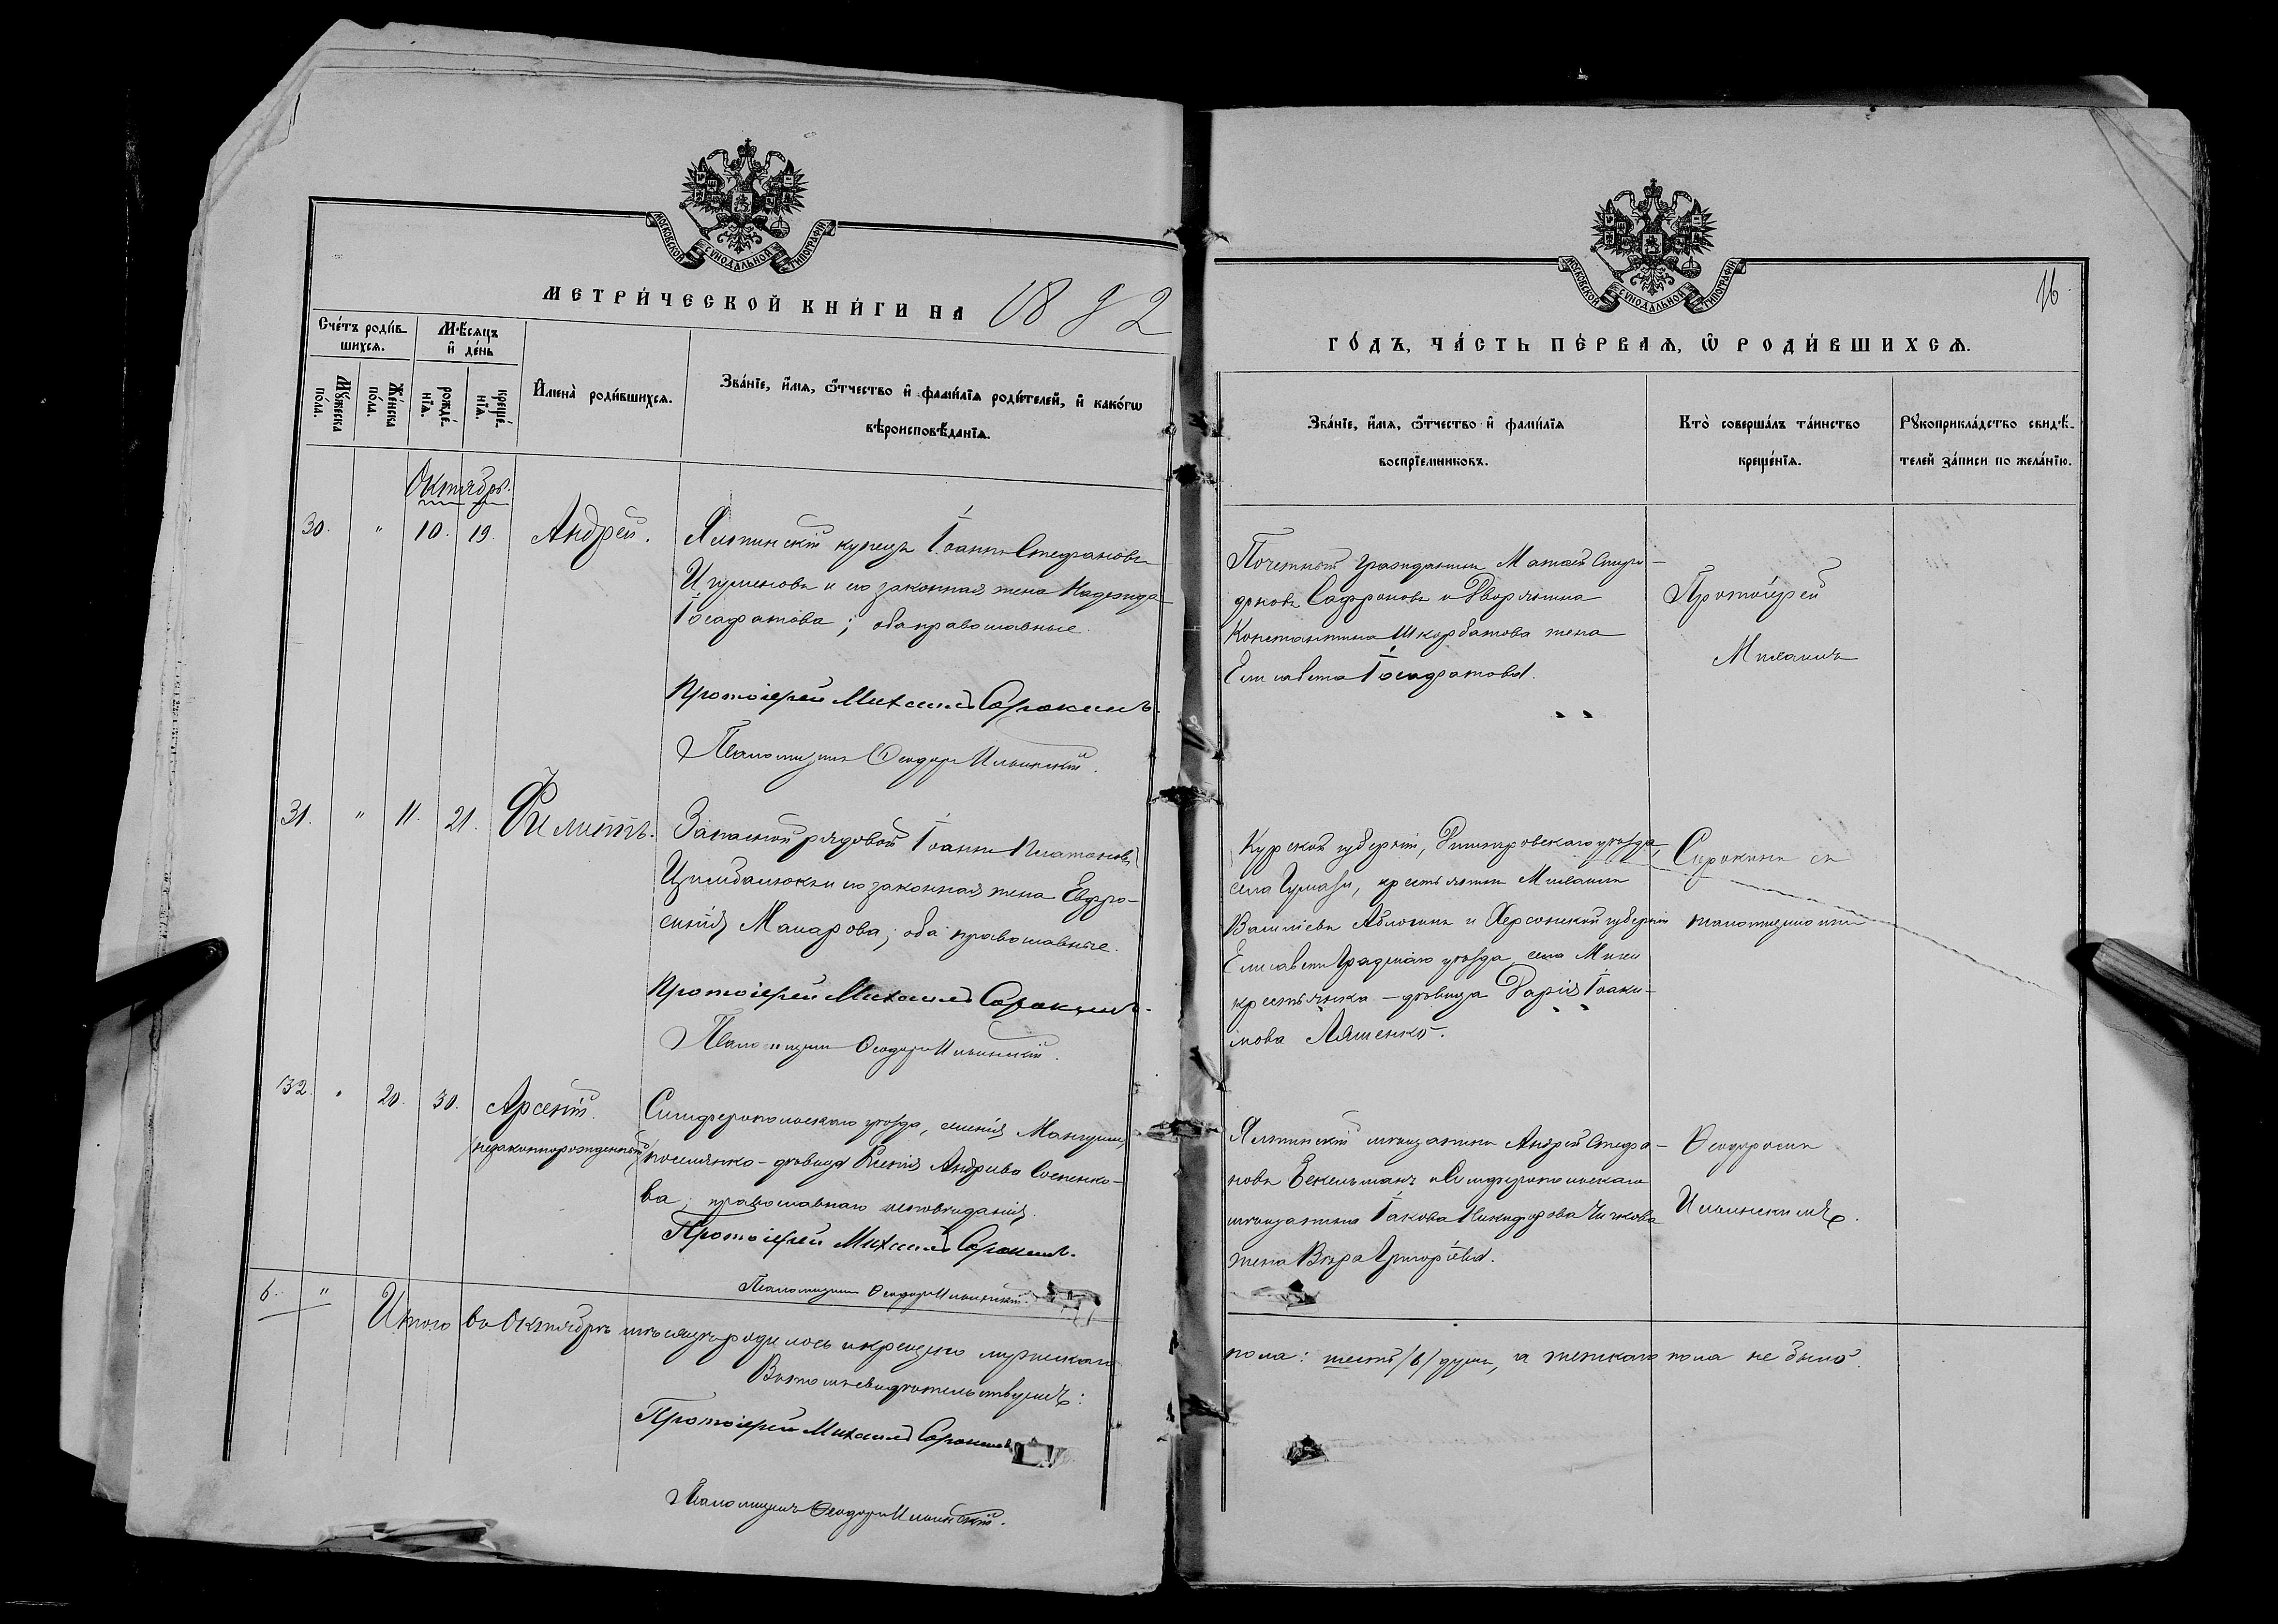 МОСКОВСКОЙ СѴНОДАЛЬНОЙ ТИПОГРАФІИ
МЕТРИ́ЧЕСКОЙ КНИ́ГИ НА 1892
Сче́тъ роди́в-
шихсѧ.
Мѣ́сѧцъ
и҆ де́нь
Мꙋ́жеска
по́ла.
Же́нска
по́ла.
рожде́-
нїѧ.
креще́-
нїѧ.
И҆мена̀ роди́вшихсѧ.
Зва́нїе, и҆́мѧ, ѻ҆́тчество и҆ фами́лїѧ роди́телей, и҆ како́гѡ
вѣроисповѣ́данїѧ.
Октябрь.
30. " 10. 19. Андрей.
Ялтинскій купецъ Іоаннъ Стефановъ
Игуменовъ и его законная жена Надежда
Іосафатова; оба православные.
Протоіерей Михаилъ Сорокинъ.
Псаломщикъ Ѳеодоръ Ильинскій.
31. " 11. 21. Филиппъ.
Запасной рядовой Іоаннъ Платоновъ
Цимбалюкъ и его законная жена Евфро-
синія Макарова; оба православные.
Протоіерей Михаилъ Сорокинъ.
Псаломщикъ Ѳеодоръ Ильинскій.
32. " 20. 30. Арсеній.
/незаконнорожденный/
Симферопольскаго уѣзда, селенія Мангушъ,
поселянка - дѣвица Ксенія Андреева
православнаго исповѣданія.
Протоіерей Михаилъ Сорокинъ.
Псаломщикъ Ѳеодоръ Ильинскій.
6. " Итого въ Октябрѣ мѣсяцѣ родилось и крещено мужескаго
Въ томъ свидѣтельствуемъ:
Протоіерей Михаилъ Сорокинъ
Псаломщикъ Ѳеодоръ Ильинскій.
МОСКОВСКОЙ СѴНОДАЛЬНОЙ ТИПОГРАФІИ
16.
ГО́ДЪ, ЧА́СТЬ ПЕ́РВАѦ, Ѡ҆ РОДИ́ВШИХСѦ.
Зва́нїе, и҆́мѧ, ѻ҆́тчество и҆ фами́лїѧ
воспрїемниковъ.
Кто̀ соверша́лъ та́инство
креще́нїѧ.
Рꙋкоприкла́дство свидѣ́-
телей за́писи по жела́нїю.
Почетный гражданинъ Матвей Спири-
доновъ Сафроновъ и Дворянина
Константина Шкорбатова жена
Елисавета Іосафатова.
Протоіерей
Михаилъ
Курской губерніи, Дмитровскаго уѣзда,
села крестьянинъ Михаилъ
Василіевъ и Херсонской губерніи
Елисаветградскаго уѣзда, села
крестьянка - дѣвица Дарія Іоаки-
мова Ляшенко.
Сорокинъ съ
псаломщикомъ
Ялтинскій мѣщанинъ Андрей Стефа-
новъ и Симферопольскаго
мѣщанина Іакова Никифорова Чичкова
жена Вѣра Григоріева.
Ѳеодоромъ
Ильинскимъ.
пола: шесть /6/ душъ, а женскаго пола не было.